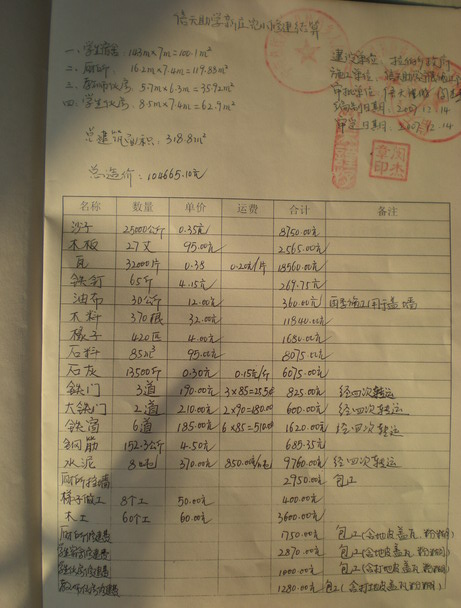 倍天助学新庄完小修建结算
一、学生宿舍:14.3m×7m=100.1m²
二、厕所:16.2m×7.4m=119.88m²
三、教师伙房:5.7m×6.3m=35.92m²
四、学生伙房:8.5m×7.4m=62.9m²
建设单位:
施工单位:
审批单位:
编制日期:2007.12.14
审定日期:2007.12.14
总建筑面积:318.8m²
总造价:104665.10元
名称 数量 单价 运费 合计 备注
沙子 25000公斤 0.35元 8750.00元
木板 27丈 95.00元 2565.00元
瓦 32000片 0.38 0.20元/片 18560.00元
铁钉 65斤 4.15元 269.75元
油布 30公斤 12.00元 360.00元
木料 370根 32.00元 11840.00元
椽子 420匹 4.00元 1680.00元
石料 85m³ 95.00元 8075.00元
石灰 13500斤 0.30元 0.15元/斤 6075.00元
铁门 3道 190.00元 3×85=255元 825.00元 经四次转运
大铁门 2道 210.00元 2×90=180.00 600.00元 经四次转运
铁窗 6道 185.00元 6×85=510.00 1620.00元 经四次转运
钢筋 152.3公斤 4.50元 685.35元
水泥 8吨 370.00元 850.00元/吨 9760.00元 经四次转运
2950.00元 包工
梯子做工 8个工 50.00元 400.00元
木工 60个工 60.00元 3600.00元
1750.00元 包工(含地皮盖瓦
2870.00元 包工(含地皮盖瓦
1000.00元 包工(含打地皮盖瓦
1280.00元 包工(含打地皮盖瓦